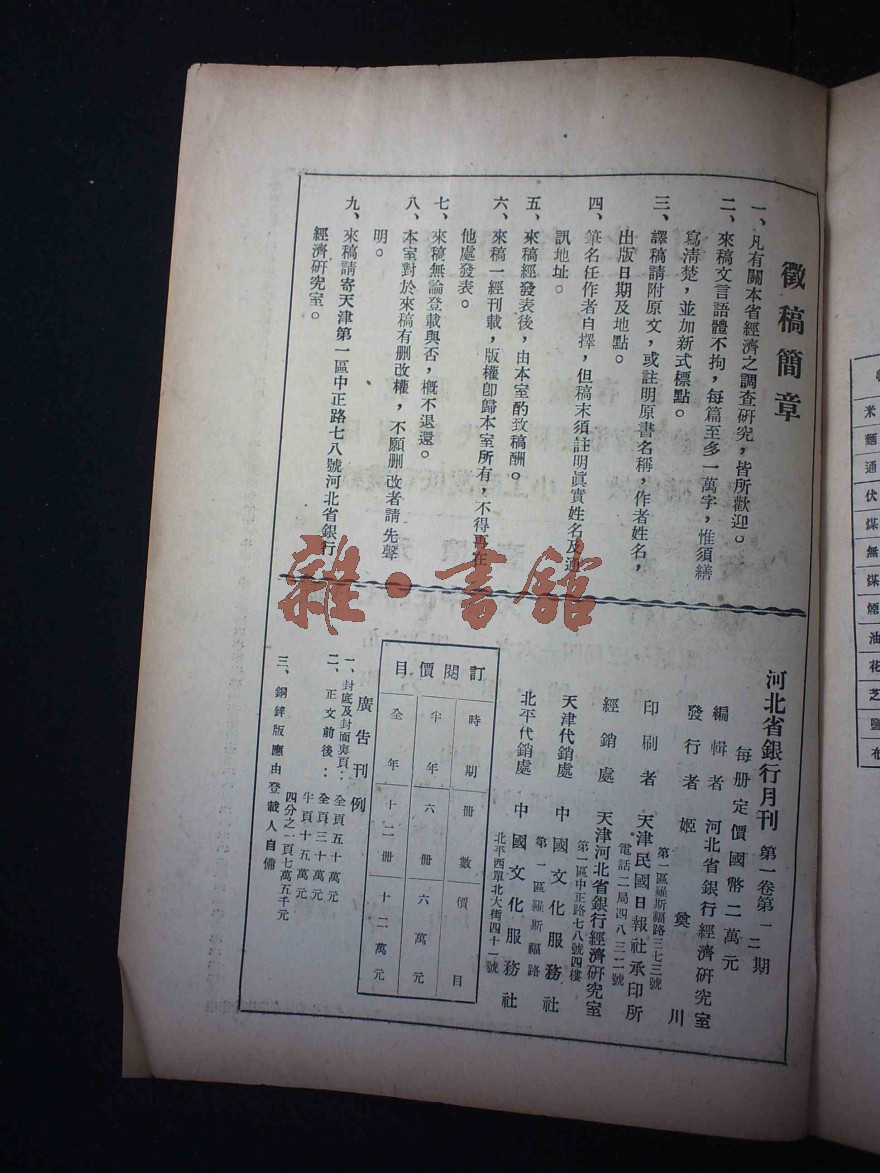 徵稿簡章
一、凡有關本省經濟之調查研究，皆所歡迎。
二、來稿文言語體不拘，每篇至多一萬字，惟須繕
寫清楚，並加新式標點。
三、譯稿請附原文，或註明原書名稱，作者姓名，
出版日期及地點。
四、筆名任作者自擇，但稿末須註明眞實姓名及通
訊地址。
五、來稿經發表後，由本室酌致稿酬。
六、來稿一經刊載，版權卽歸本室所有，不得再在
他處發表。
七、來稿無論登載與否，槪不退還。
八、本室對於來稿有刪改權，不願刪改者請先聲
明。
九、來稿請寄天津第一區中正路七八號河北省銀行
經濟研究室。
河北省銀行月刊 第一卷第一二期
每册定價國幣二萬元
編輯者 河北省銀行經濟研究室
發行者 姬奠川
印刷者 天津民國日報社承印所
第一區羅斯福路三七三號
電話二局四八三二號
經銷處 天津河北省銀行經濟研究室
第一區中正路七八號四樓
天津代銷處 中國文化服務社
第一區羅斯福路
北平代銷處 中國文化服務社
北平西單北大街四十一號
訂閱價目
時期 册數 價目
半年 六册 六萬元
全年 十二册 十二萬元
廣告刊例
一、封底及封面裏頁：全頁五十萬元
二、正文前後：全頁三十萬元
半頁十五萬元
四分之一頁七萬五千元
三、銅鋅版應由登載人自備
雜·書館
米
麵
通
伏
煤
無
煤
煙
油
花
芝
鹽
布